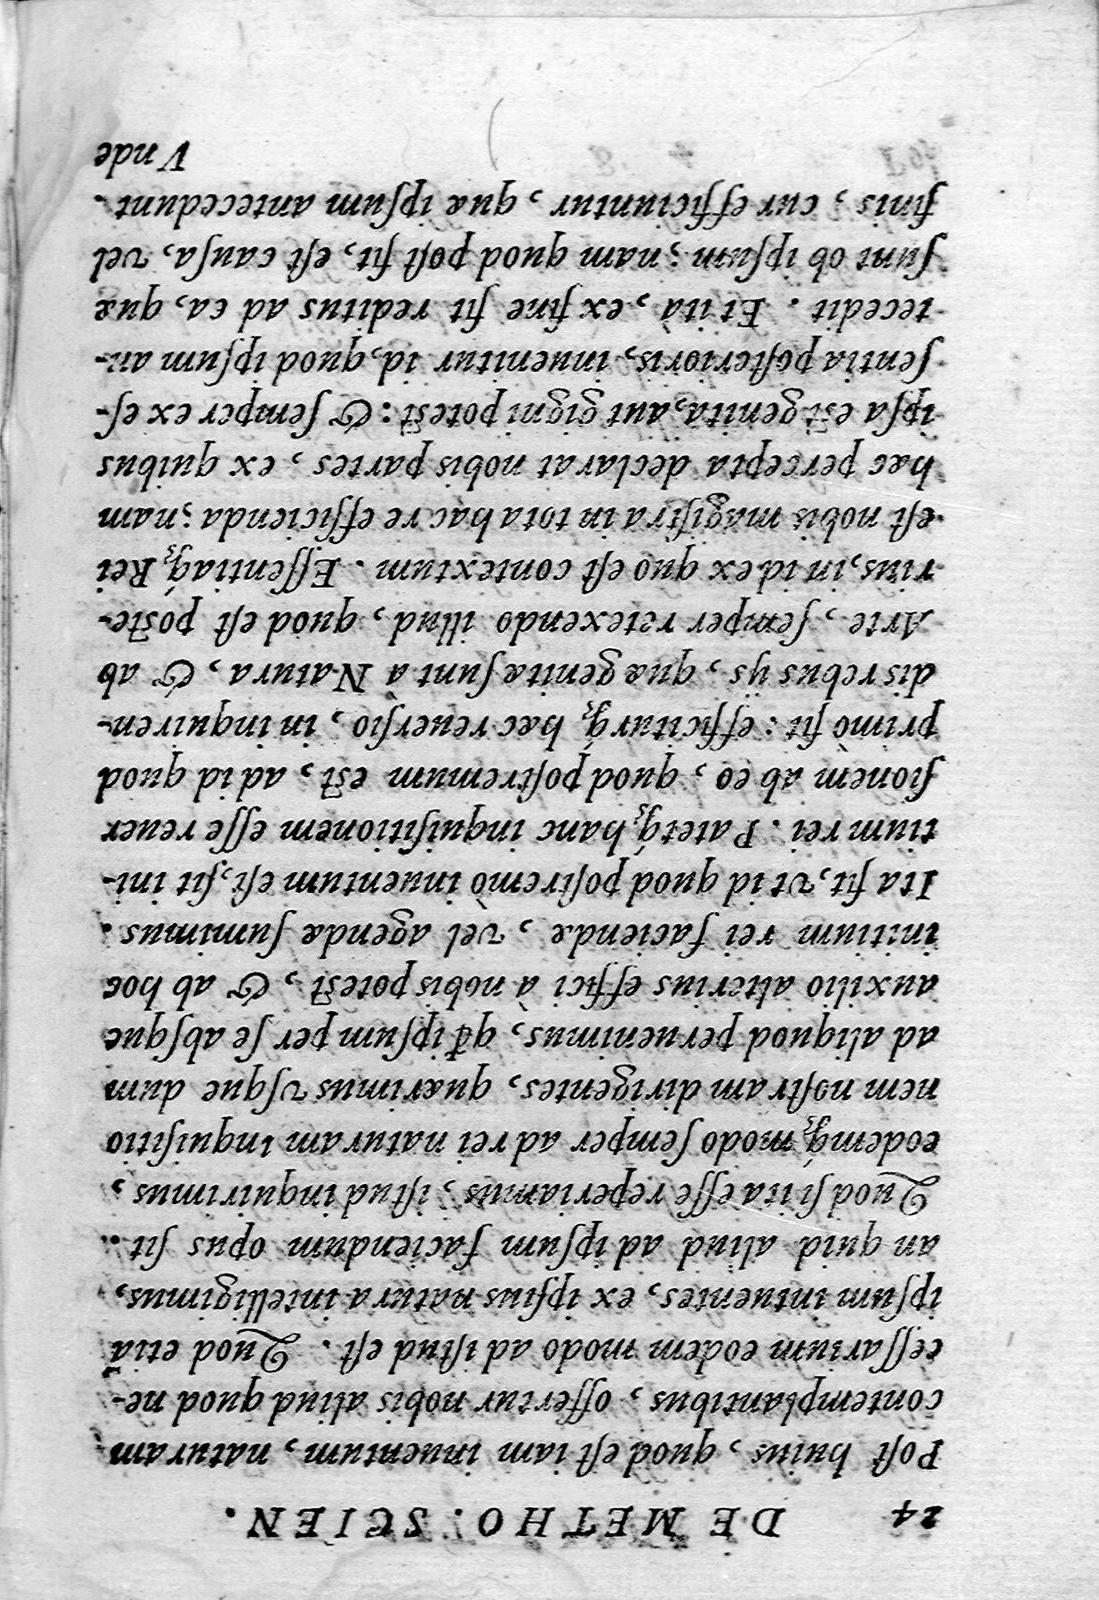 24 DE METHO. SCIEN.
Poſt huius, quod eſt iam inuentum, naturam
contemplantibus, offertur nobis aliud quod ne-
ceſſarium eodem modo ad iſtud eſt. Quod etiã
ipſum intuentes, ex ipſius natura intelligimus,
an quid aliud ad ipſum faciendum opus ſit.
Quod ſi ita eſſe reperiamus, iſtud inquirimus,
eodemq́; modo ſemper ad rei naturam inquiſitio
nem noſtram dirigentes, quærimus vſque dum
ad aliquod peruenimus, qđ ipſum per ſe abſque
auxilio alterius effici à nobis poteſt, & ab hoc
initium rei faciendæ, vel agendæ ſumimus.
Ita fit, vt id quod poſtremò inuentum eſt, ſit ini-
tium rei. Patetq́; hanc inquiſitionem eſſe reuer
ſionem ab eo, quod poſtremum eſt, ad id quod
primò fit: efficiturq́; hæc reuerſio, in inquiren-
dis rebus ijs, quæ genitæ ſunt à Natura, & ab
Arte, ſemper retexendo illud, quod eſt poſte-
rius, in id ex quo eſt contextum. Eſſentiaq́; Rei
eſt nobis magiſtra in tota hac re efficienda; nam
hæc percepta declarat nobis partes, ex quibus
ipſa eſt genita, aut gigni poteſt: & ſemper ex eſ-
ſentia poſterioris, inuenitur id, quod ipſum an-
tecedit. Et ità, ex fine fit reditus ad ea, quæ
ſunt ob ipſum; nam quod poſt fit, eſt cauſa, vel
finis, cur efficiuntur, quæ ipſum antecedunt.
Vnde